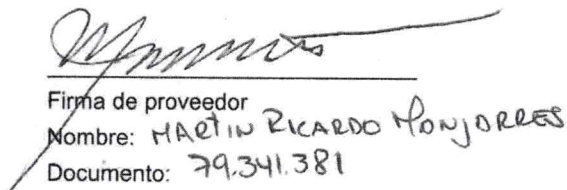 Firma de proveedor
Nombre: MARTIN RICARDO MONJORRES
Documento: 79.341.381